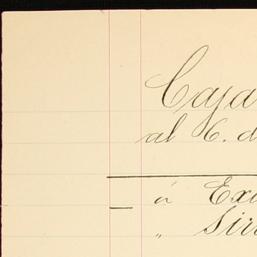 Caja
al 6. d
á Exi
" Sir